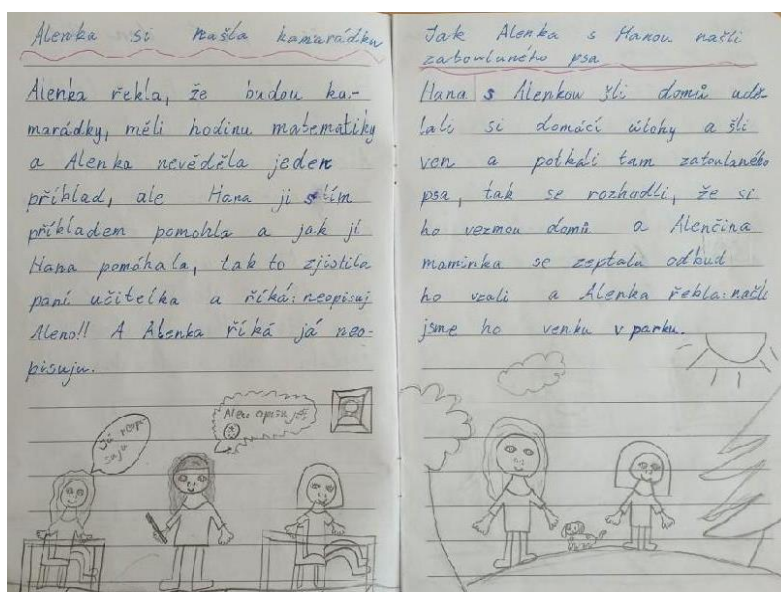 Alenka si našla kamarádku
Alenka řekla, že budou ka-
marádky, měli hodinu matematiky
a Alenka nevěděla jeden
příklad, ale Hana ji stím
příkladem pomohla a jak jí
Hana pomáhala, tak to zjistila
paní učitelka a říká: neopisuj
Aleno!! A Alenka říká já neo-
pisuju.
Já neopi-
suju
Aleno opisuješ
Jak Alenka s Hanou našli
zatoulaného psa
Hana s Alenkou šli domů udě-
lali si domácí úlohy a šli
ven a potkali tam zatoulaného
psa, tak se rozhodli, že si
ho vezmou domů a Alenčina
maminka se zeptala odkud
ho vzali a Alenka řekla: našli
jsme ho venku v parku.